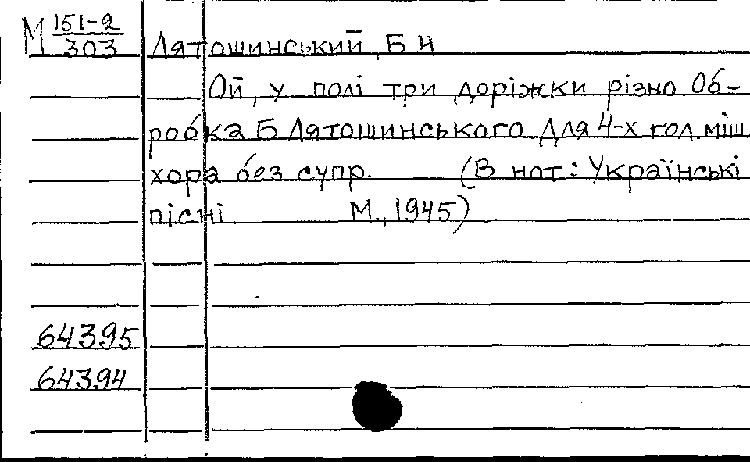 М 151-2/303 Лятошинський, Б Н
Ой, у полі три доріжки різно Об-
робка Б Лятошинського Для 4-х гол. міш.
хора без супр. (В нот: Українські
пісні М., 1945)
64395
64394